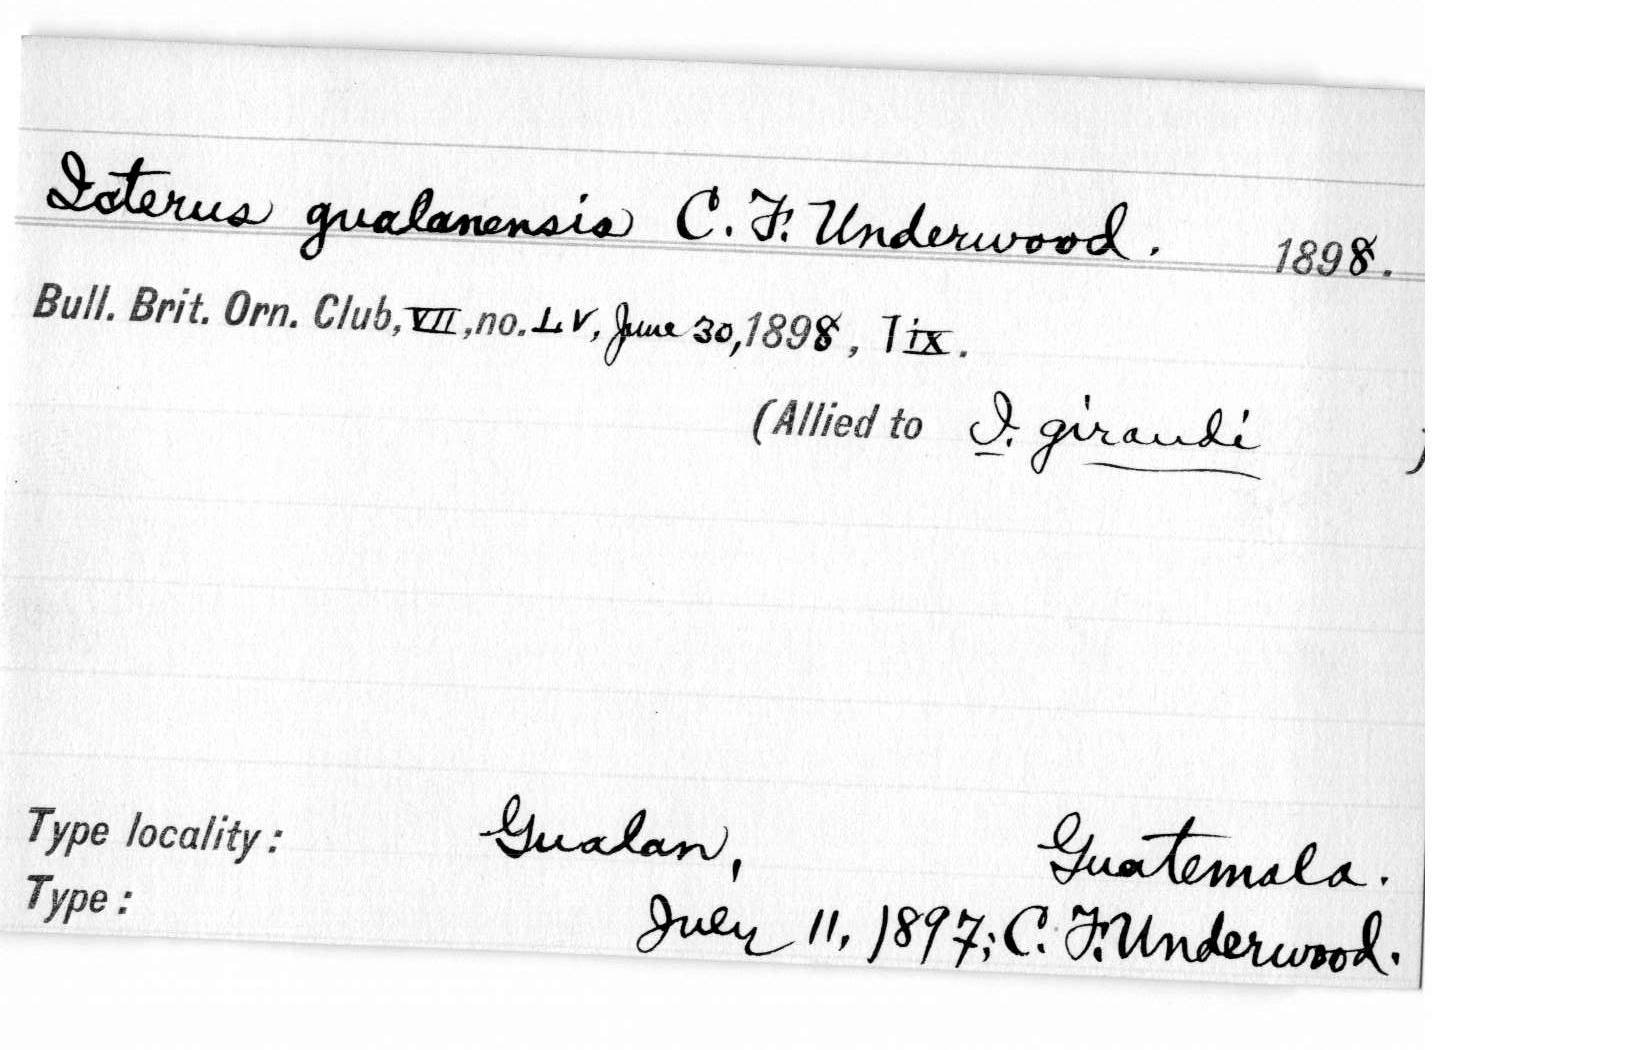 Icterus gualanensis C. F. Underwood. 1898.
Bull. Brit. Orn. Club, VII, no. LV, June 30, 1898, lix.
(Allied to I. giraudi )
Type locality: Gualan, Guatemala.
Type: July 11, 1897; C. F. Underwood.